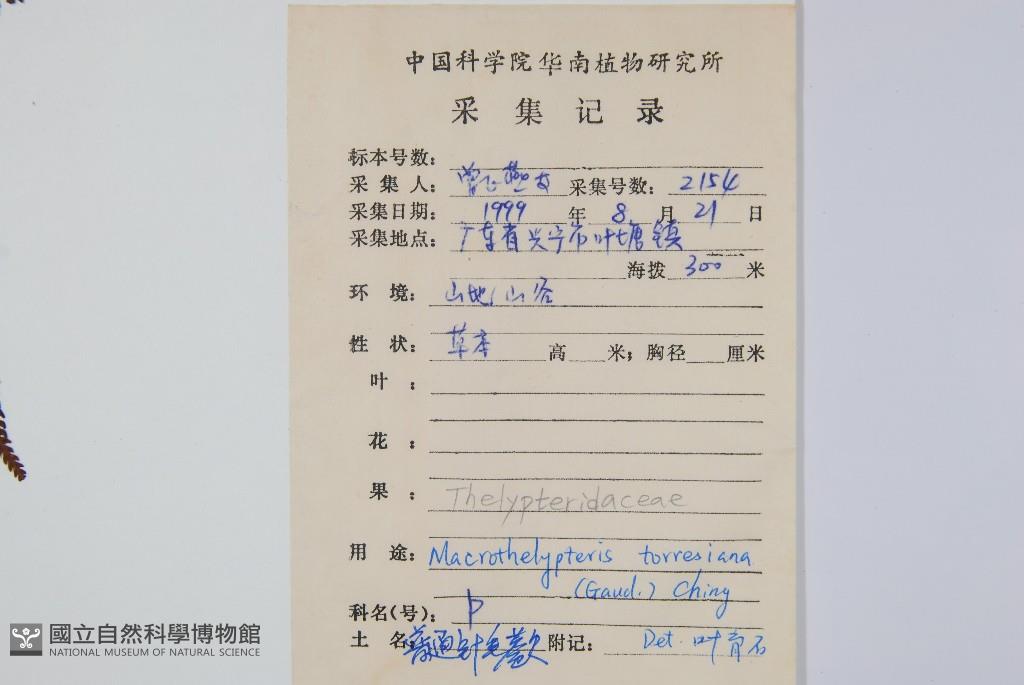 中国科学院华南植物研究所
采集记录
标本号数:
采集人: 曾飞燕 采集号数: 2154
采集日期: 1999 年 8 月 21 日
采集地点: 广东省兴宁市叶塘镇
海拨 300 米
环境: 山地, 山谷
性状: 草本 高 米; 胸径 厘米
叶:
花:
果: Thelypteridaceae
用途: Macrothelypteris torresiana
(Gaud.) Ching
科名(号): P
土名: 普通针毛蕨 附记: Det. 叶育石
國立自然科學博物館
NATIONAL MUSEUM OF NATURAL SCIENCE